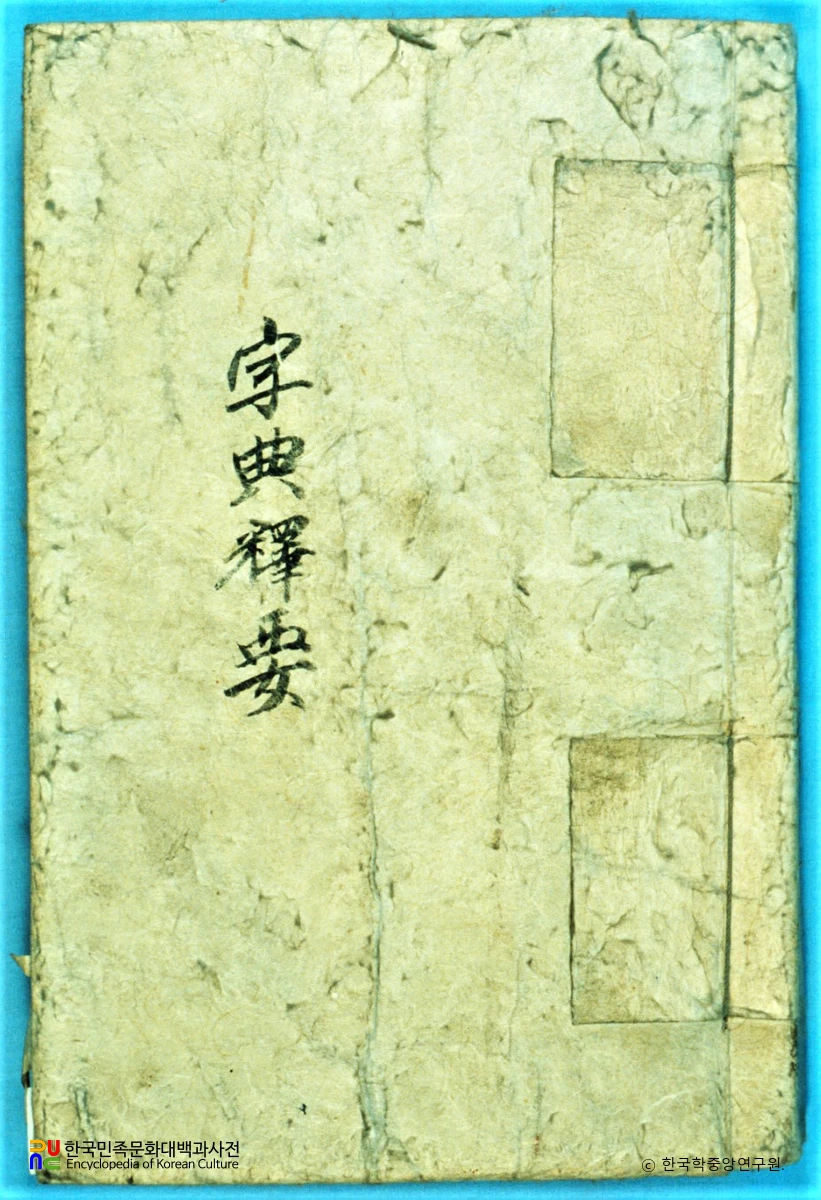 字典釋要
한국민족문화대백과사전
Encyclopedia of Korean Culture
© 한국학중앙연구원